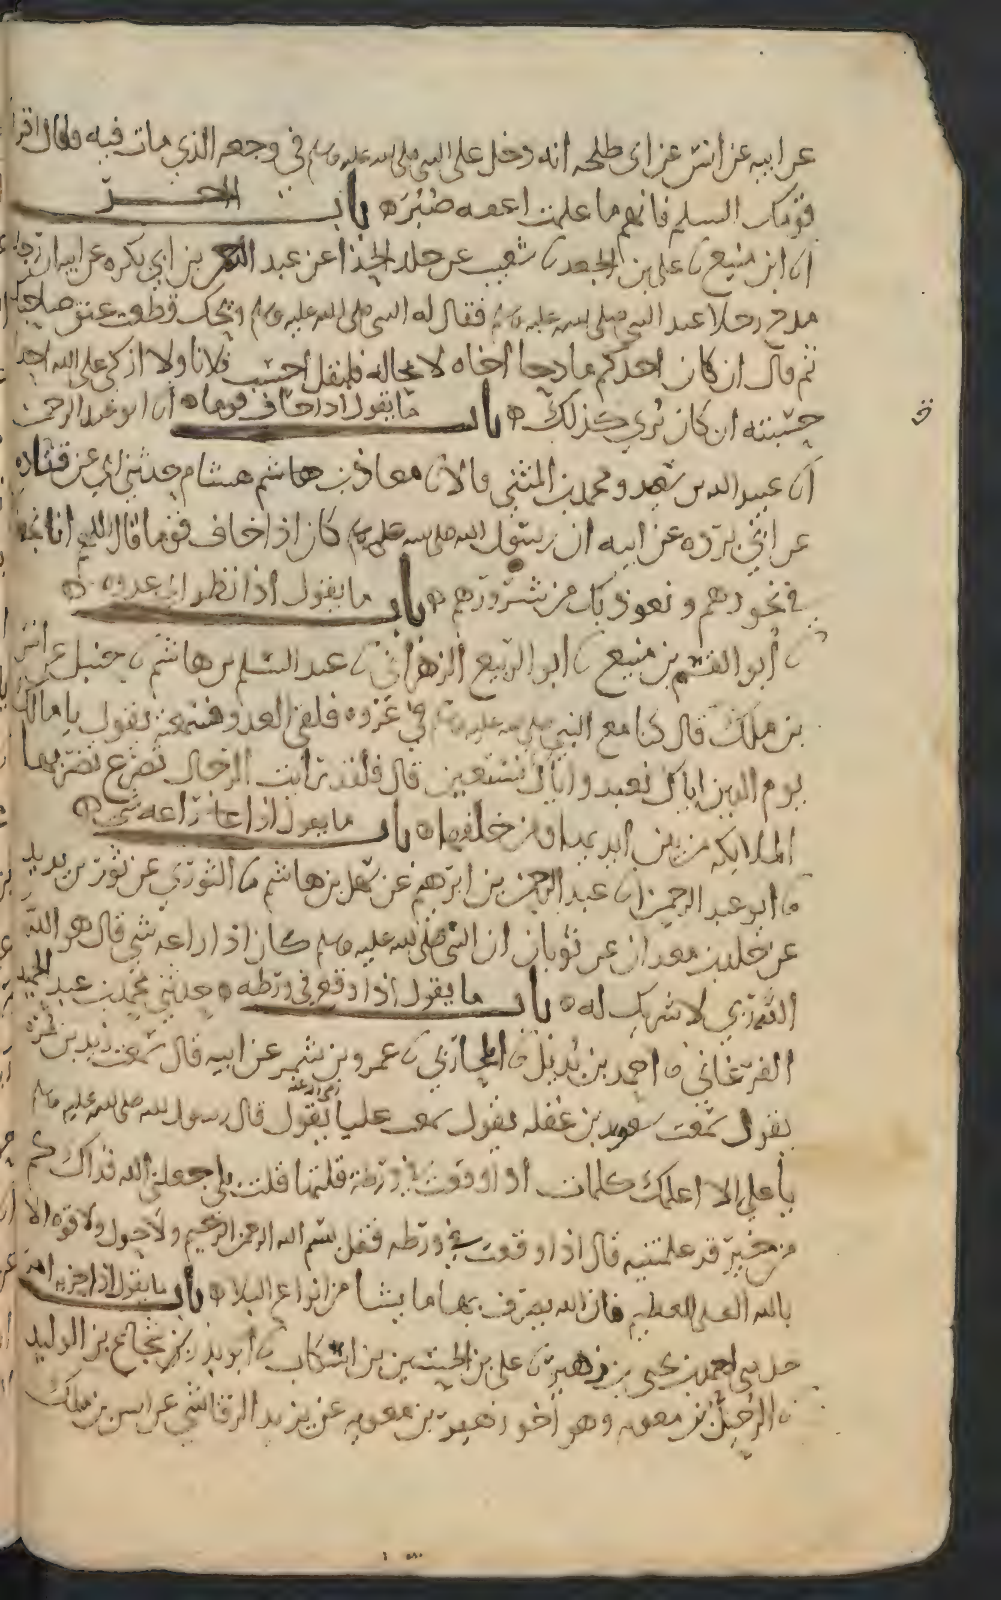 عن ابيه عن انس عن ابي طلحه انه دخل على النبي صلى الله عليه وسلم في وجعه الذي مات فيه فقال اقرا
قومك السلم فانهم ما علمت اعفه صبر باب
انا ابن منيع نا علي بن الجعد نا شعبه عن خلد الحذا عن عبد الرحمن بن ابي بكره عن ابيه ان رجلا
مدح رجلا عند النبي صلى الله عليه وسلم فقال له النبي صلى الله عليه وسلم ويحك قطعت عنق صاحبك
ثم قال ان كان احدكم مادحا اخاه لا محاله فليقل احسب فلانا ولا ازكي على الله احدا
حسبته ان كان يرى كذلك باب ما يقول اذا خاف قوما انا ابو عبد الرحمن
انا عبيد الله بن سعيد ومحمد بن المثنى قالا نا معاذ بن هشام حدثني ابي عن قتاده
عن ابي برده عن ابيه ان رسول الله صلى الله عليه وسلم كان اذا خاف قوما قال اللهم انا نجعلك
في نحورهم ونعوذ بك من شرورهم باب ما يقول اذا نظر الى عدوه
نا ابو القسم بن منيع نا ابو الربيع الزهراني نا عبد السلم بن هاشم نا حنبل عن انس
بن ملك قال كنا مع النبي صلى الله عليه وسلم في غزوه فلقي العدو فسمعته يقول يا مالك
يوم الدين اياك نعبد واياك نستعين قال فلقد رايت الرجال تصرع تضربها
الملايكه من بين ايديها ومن خلفها باب ما يقول اذا راعه شي
نا ابو عبد الرحمن انا عبد الرحمن بن ابرهيم عن سهل بن هاشم نا الثوري عن ثور بن يزيد
عن خلد بن معدان عن ثوبان ان النبي صلى الله عليه وسلم كان اذا راعه شي قال هو الله
الله ربي لا شريك له باب ما يقول اذا وقع في ورطه حدثني محمد بن عبد الحميد
الفرغاني نا احمد بن بديل نا المحاربي نا عمرو بن شمر عن ابيه قال سمعت يزيد بن مره
يقول سمعت سويد بن غفله يقول سمعت عليا رضي الله عنه يقول قال رسول الله صلى الله عليه وسلم
يا علي الا اعلمك كلمات اذا وقعت في ورطه قلتها قلت بلى جعلني الله فداك كم
من خير قد علمتنيه قال اذا وقعت في ورطه فقل بسم الله الرحمن الرحيم ولا حول ولا قوه الا
بالله العلي العظيم فان الله يصرف بها ما يشا من انواع البلا باب ما يقول اذا حزبه امر
حدثني احمد بن يحيى بن زهير نا علي بن الحسين بن اشكاب نا ابو بدر شجاع بن الوليد
نا الرحيل بن معويه وهو اخو زهير بن معويه عن يزيد الرقاشي عن انس بن ملك